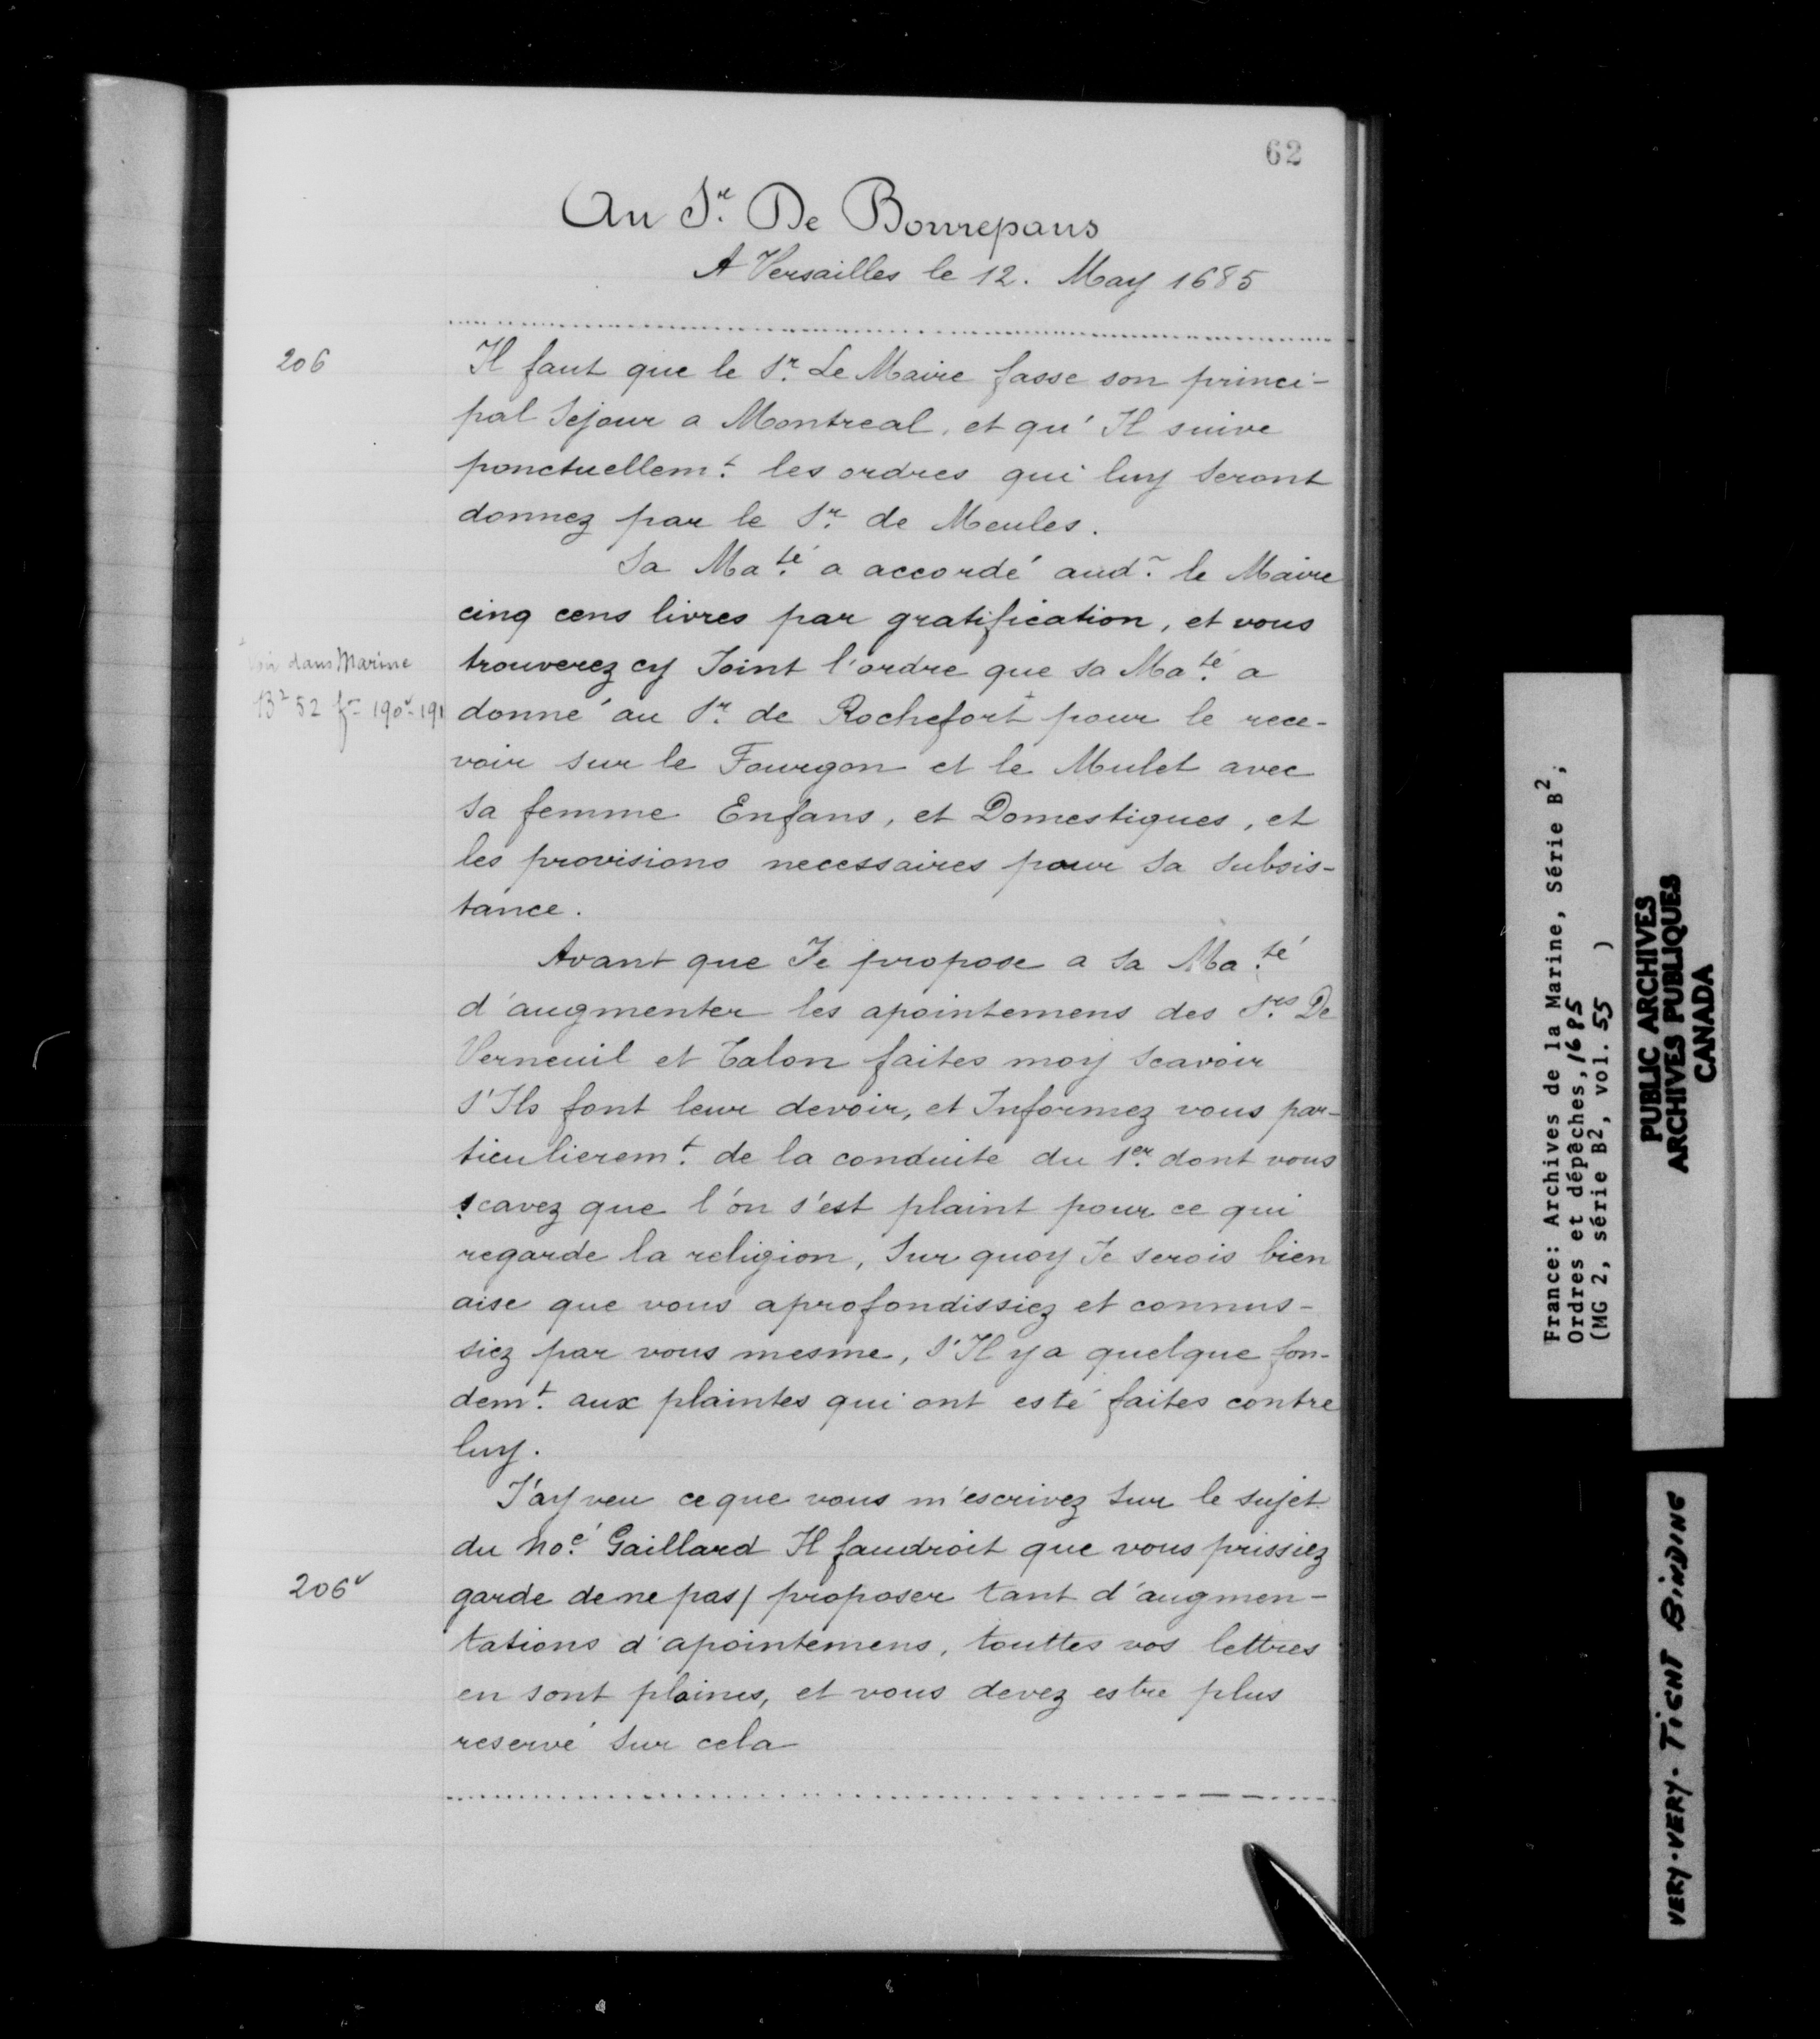 62
Au Sr. De Bonrepaus
A Versailles le 12. May 1685
206
Il faut que le Sr. Le Maire fasse son princi-
pal Sejour a Montreal, et qu'Il suive
ponctuellemt. les ordres qui luy seront
donnez par le Sr. de Meules.
Sa Maté. a accordé aud. le Maire
cinq cens livres par gratification, et vous
trouverez cy Joint l'ordre que sa Maté. a
donné au Sr. de Rochefort + pour le rece-
voir sur le Fourgon et le Mulet avec
sa femme Enfans, et Domestiques, et
les provisions necessaires pour sa subsis-
tance.
+ Voir dans Marine
B2 52 f- 190v-191
Avant que Je propose a sa Maté.
d'augmenter les apointemens des Srs. De
Verneuil et Talon faites moy scavoir
s'Ils font leur devoir, et Informez vous par-
ticulieremt. de la conduite du 1er. dont vous
scavez que l'on s'est plaint pour ce qui
regarde la religion, Sur quoy Je serois bien
aise que vous aprofondissiez et connus-
siez par vous mesme, s'Il y a quelque fon-
demt. aux plaintes qui ont esté faites contre
luy.
J'ay veu ce que vous m'escrivez sur le sujet
du noé. Gaillard Il faudroit que vous prissiez
206v
garde de ne pas / proposer tant d'augmen-
tations d'apointemens, touttes vos lettres
en sont plaines, et vous devez estre plus
reservé sur cela
France: Archives de la Marine, Série B2,
Ordres et dépêches, 1685
(MG 2, série B2, vol. 55 )
PUBLIC ARCHIVES
ARCHIVES PUBLIQUES
CANADA
VERY-VERY-TIGHT BINDING